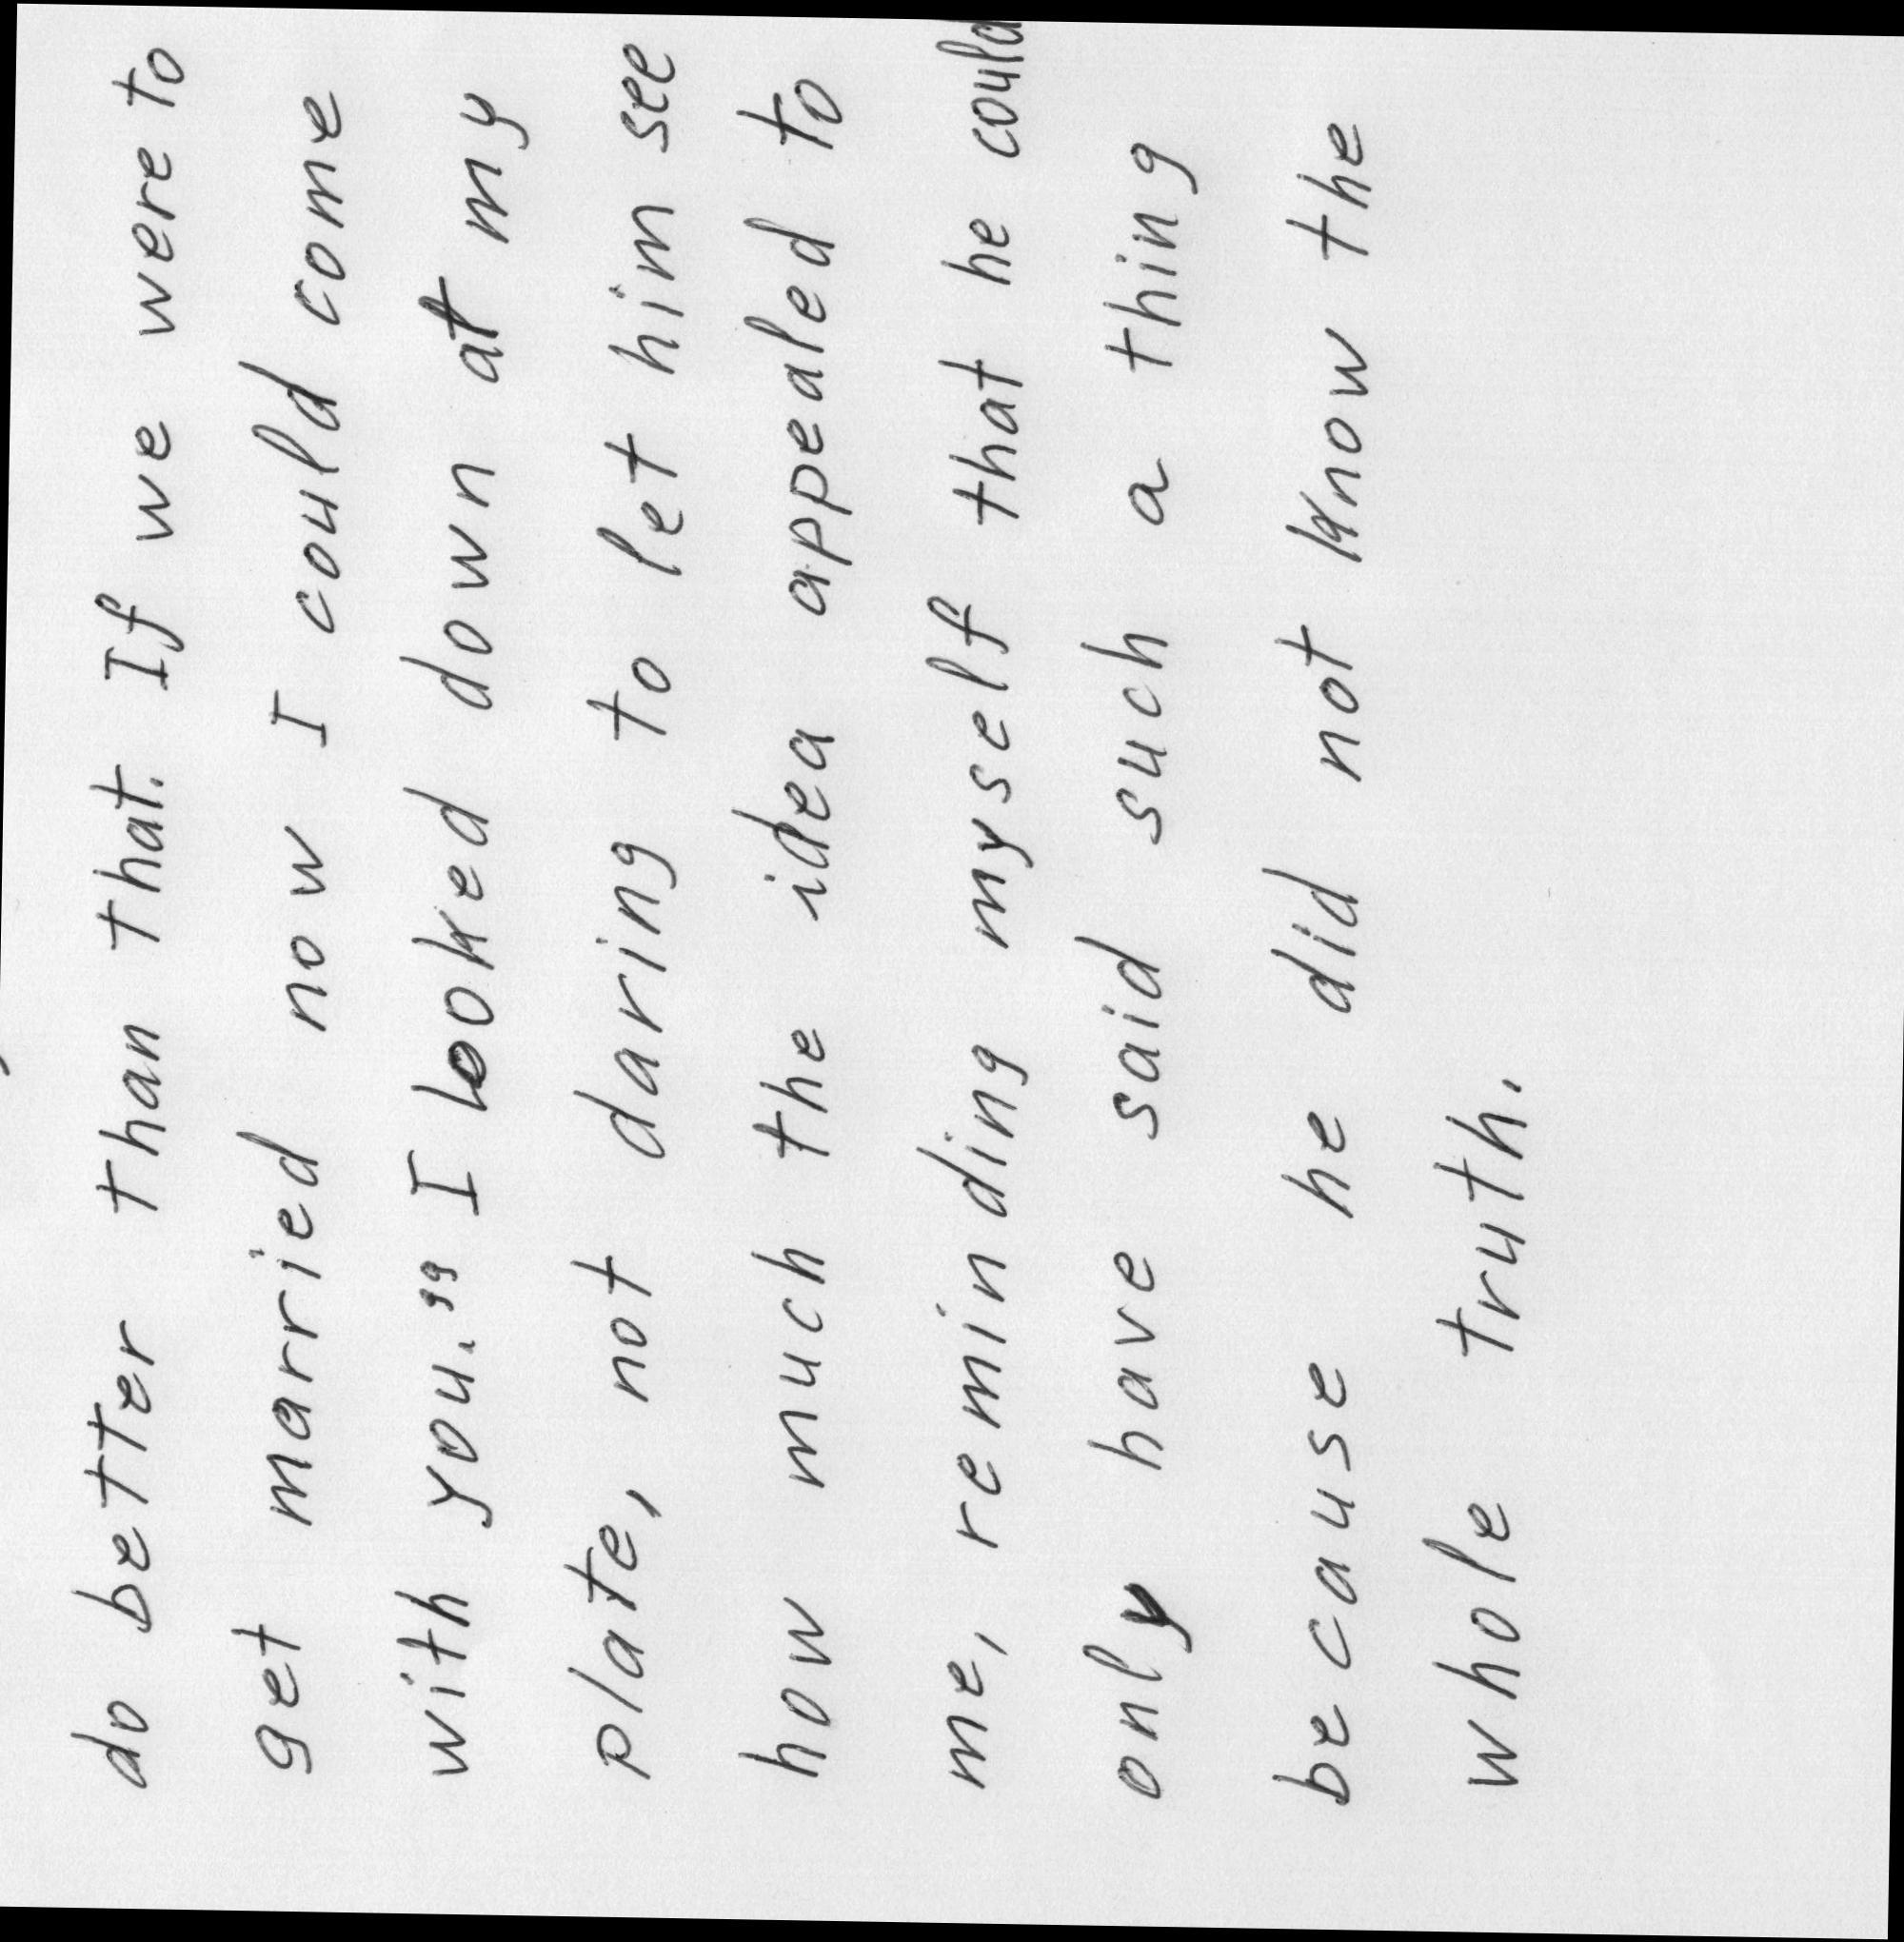 do better than that. If we were to
get married now I could come
with you." I looked down at my
plate, not daring to let him see
how much the idea appealed to
me, reminding myself that he could
only have said such a thing
because he did not know the
whole truth.